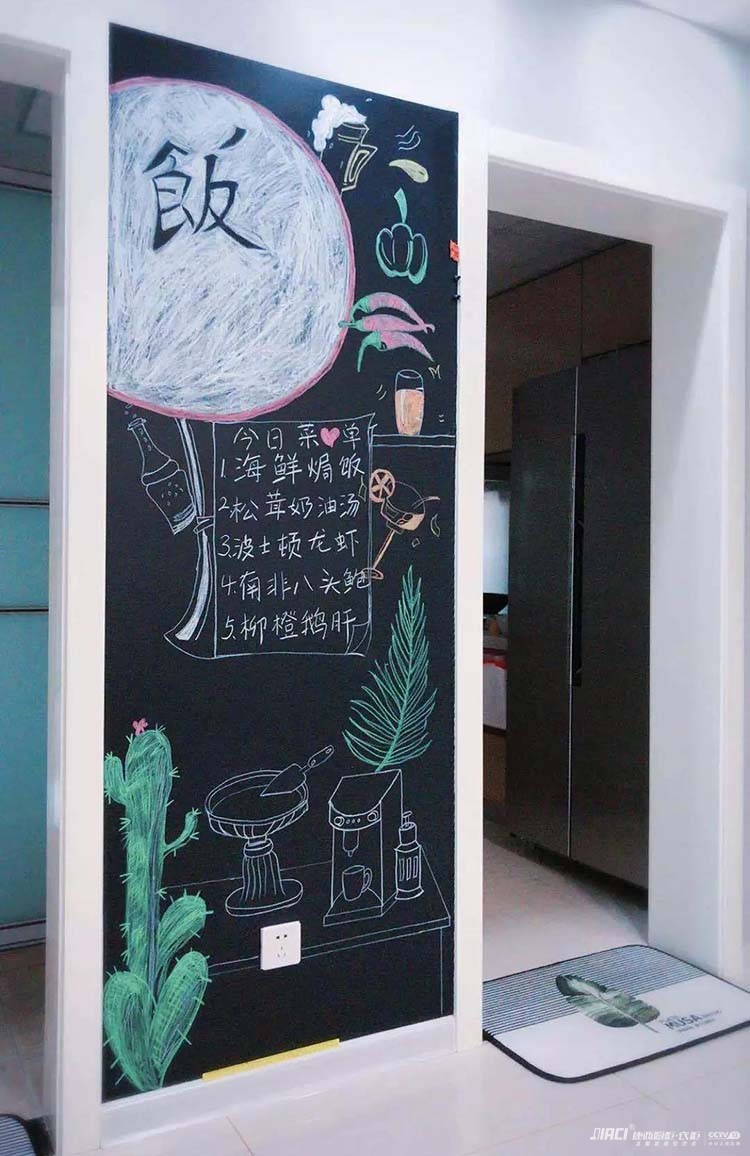 飯
今日菜单
1.海鲜焗饭
2.松茸奶油汤
3.波士顿龙虾
4.南非八头鲍
5.柳橙鹅肝
MUSA
JIACI
CCTV